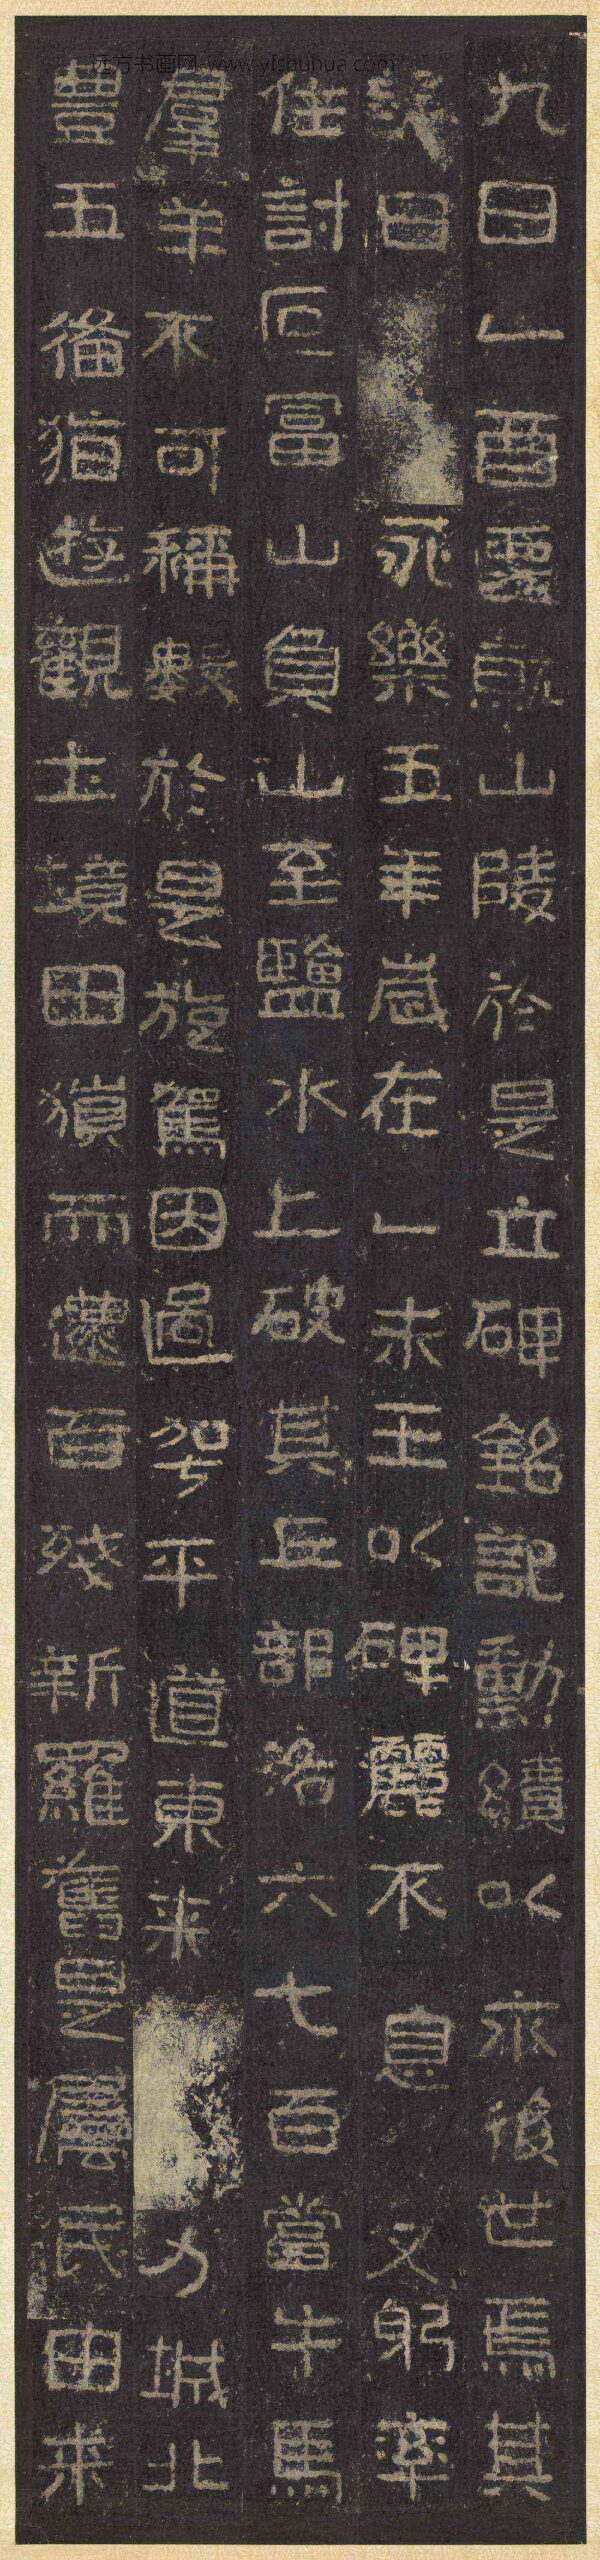 远方书画网 www.yfshuhua.com
九日乙酉遷就山陵於是立碑銘記勳績以永後世焉其
詞曰 永樂五年歲在乙未王以碑麗不息又躬率
住討叵富山負山至鹽水上破其丘部洛六七百當牛馬
羣羊不可稱數於是旋駕因過平道東来力城北
豊五備猶遊觀土境田獵而還百殘新羅舊是屬民由来